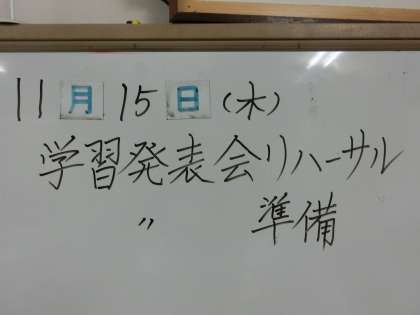 11月15日(木)
学習発表会リハーサル
〃 準備